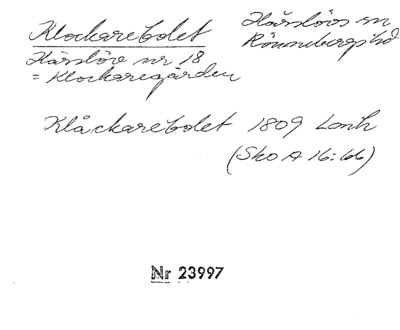 Klockarebolet
Härslövs sn
Rönnebergs hd
Härslöv nr 18
= Klockaregården
Klåckarebolet 1809 Lmh
(Sko A 16:66)
Nr 23997